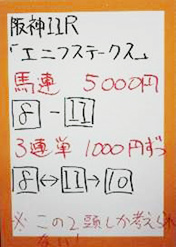 阪神11R
「エニフステークス」
馬連 5000円
8-11
3連単 1000円ずつ
8↔11→10
※この2頭しか考えられ
ない!